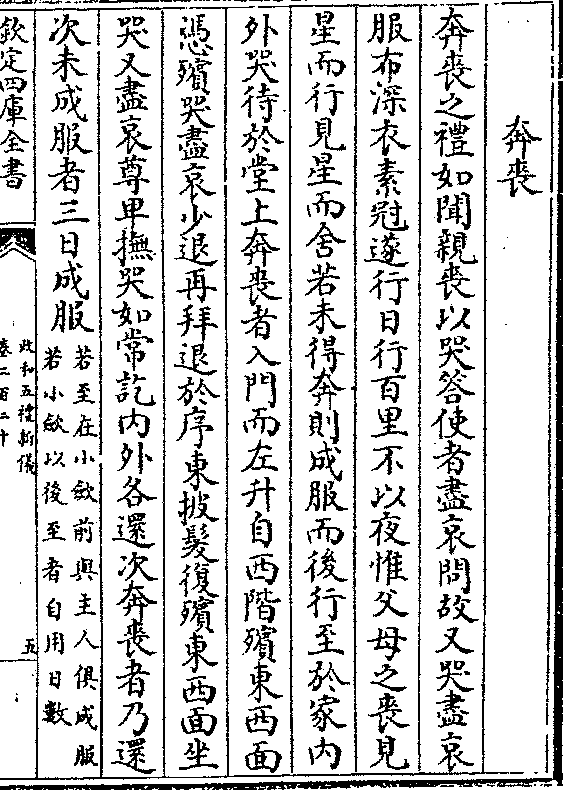 奔喪
奔喪之禮如聞親喪以哭答使者盡哀問故又哭盡哀
服布深衣素冠遂行日行百里不以夜惟父母之喪見
星而行見星而舍若未得奔則成服而後行至於家内
外哭待於堂上奔喪者入門而左升自西階殯東西面
憑殯哭盡哀少退再拜退於序東披髮復殯東西面坐
哭又盡哀尊卑撫哭如常訖内外各還次奔喪者乃還
次未成服者三日成服
若至在小歛前與主人俱成服
若小歛以後至者自用日數
欽定四庫全書
政和五禮新儀
卷二百二十
五